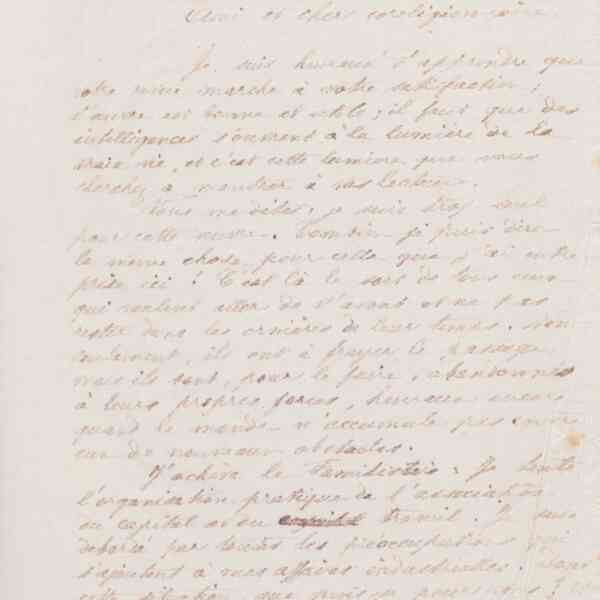 Ami et cher coreligionnaire
Je suis heureux d'apprendre que
votre revue marche à votre satisfaction ;
l'œuvre est bonne et utile ; il faut que des
intelligences s'ouvrent à la lumière de la
vraie vie, et c'est cette lumière que vous
cherchez à montrer à vos lecteurs.
Vous me dites : je suis trop seul
pour cette œuvre. Combien je puis dire
la même chose pour celle que j'ai entre
prise ici ! C'est là le sort de tous ceux
qui veulent aller de l'avant et ne pas
rester dans les ornières de leur temps. Non
seulement, ils ont à frayer le passage
mais ils sont, pour le faire, abandonnés
à leurs propres forces, heureux encore
quand le monde n'accumule pas
sur de nouveaux obstacles.
J'achève le Familistère ; Je tente
l'organisation pratique de l'association
du capital et du travail. Je suis
débordé par toutes les préoccupations qui
s'ajoutent à mes affaires industrielles. Dans
cette situation, que puis-je pour vous ?